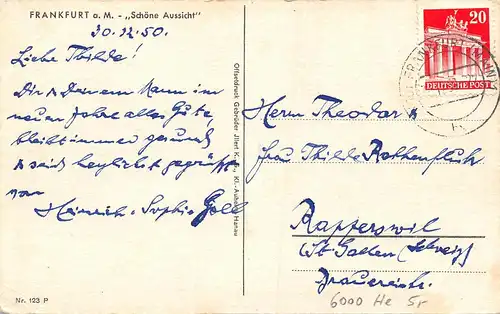 FRANKFURT a. M. - „Schöne Aussicht"
30.12.50.
Liebe Thilde!
Dir & Deinem Mann im
neuen Jahre alles Gute,
bleibt immer gesund
& seid herzlichst gegrüßt
von
Heinrich & Sophie Göll
Nr. 123 P
Offsetdruck Gebrüder Jllert K. G., Kl.-Auheim Hanau
20
DEUTSCHE POST
FRANKFURT (MAIN)
Herrn Theodor &
Frau Thilde Rothenfluh
Rapperswil
(St. Gallen) Schweiz
Brauereistr.
6000 He 5r